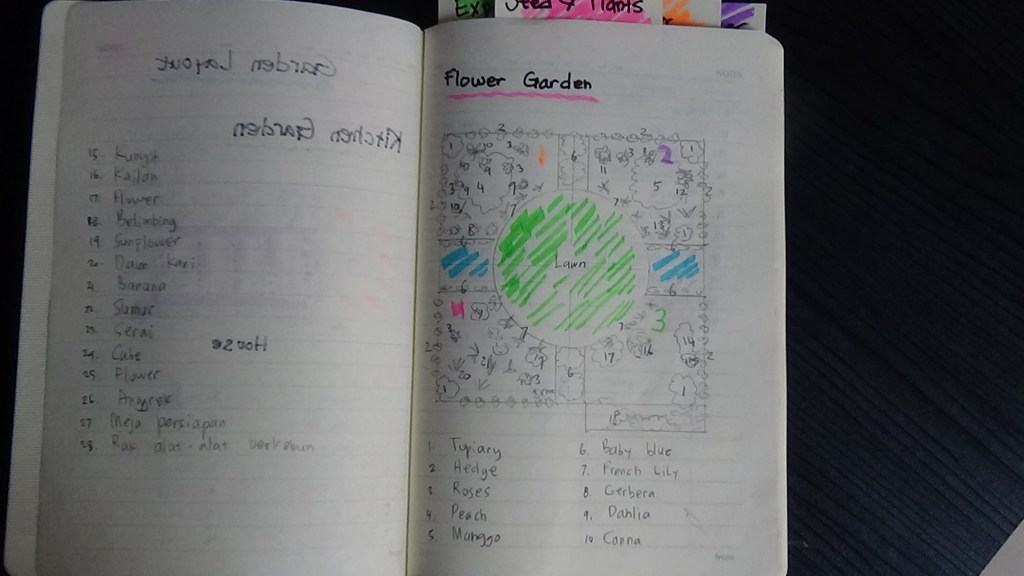 Seed & Plants
15. Kunyit
16. Kailan
17. Flower
18. Belimbing
19. Sunflower
20. Daun Kari
21. Banana
22. Sumur
23. Serai
24. Cabe
25. Flower
26. Anggrek
27. Meja persiapan
28. Rak alat-alat berkebun
Garden Layout
Kitchen Garden
House
Flower Garden
Lawn
1. Tupiary
2. Hedge
3. Roses
4. Peach
5. Manggo
6. Baby blue
7. French Lily
8. Gerbera
9. Dahlia
10. Canna